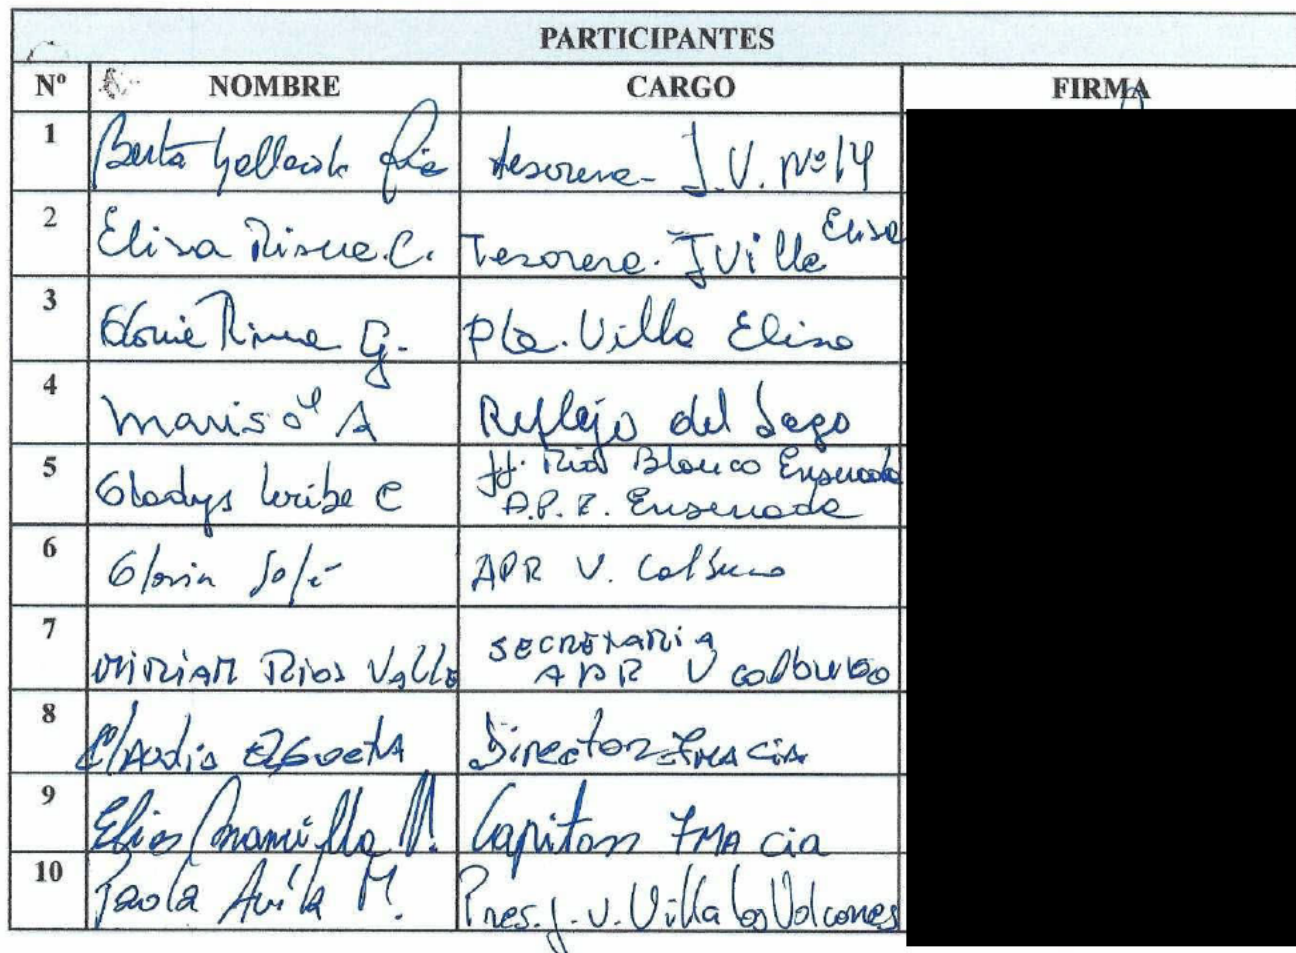 PARTICIPANTES
Nº NOMBRE CARGO FIRMA
1 Berta tesorera - J.V. Nº 14
2 Elisa Risue C. Tesorera. J Villa Elisa
3 G. Pta. Villa Elisa
4 Marisol A Reflejo del Lago
5 Gladys Uribe C JJ. Rio Blanco Ensenada
A.P.R. Ensenada
6 Gloria Solís APR V. Calbuco
7 MIRIAM RIOS VALLE SECRETARIA
APR V calbuco
8 Claudio Director 7MA CIA
9 Elias Mansilla Capitan 7MA cia
10 Paola Avila M. Pres. J. V. Villa los Volcanes